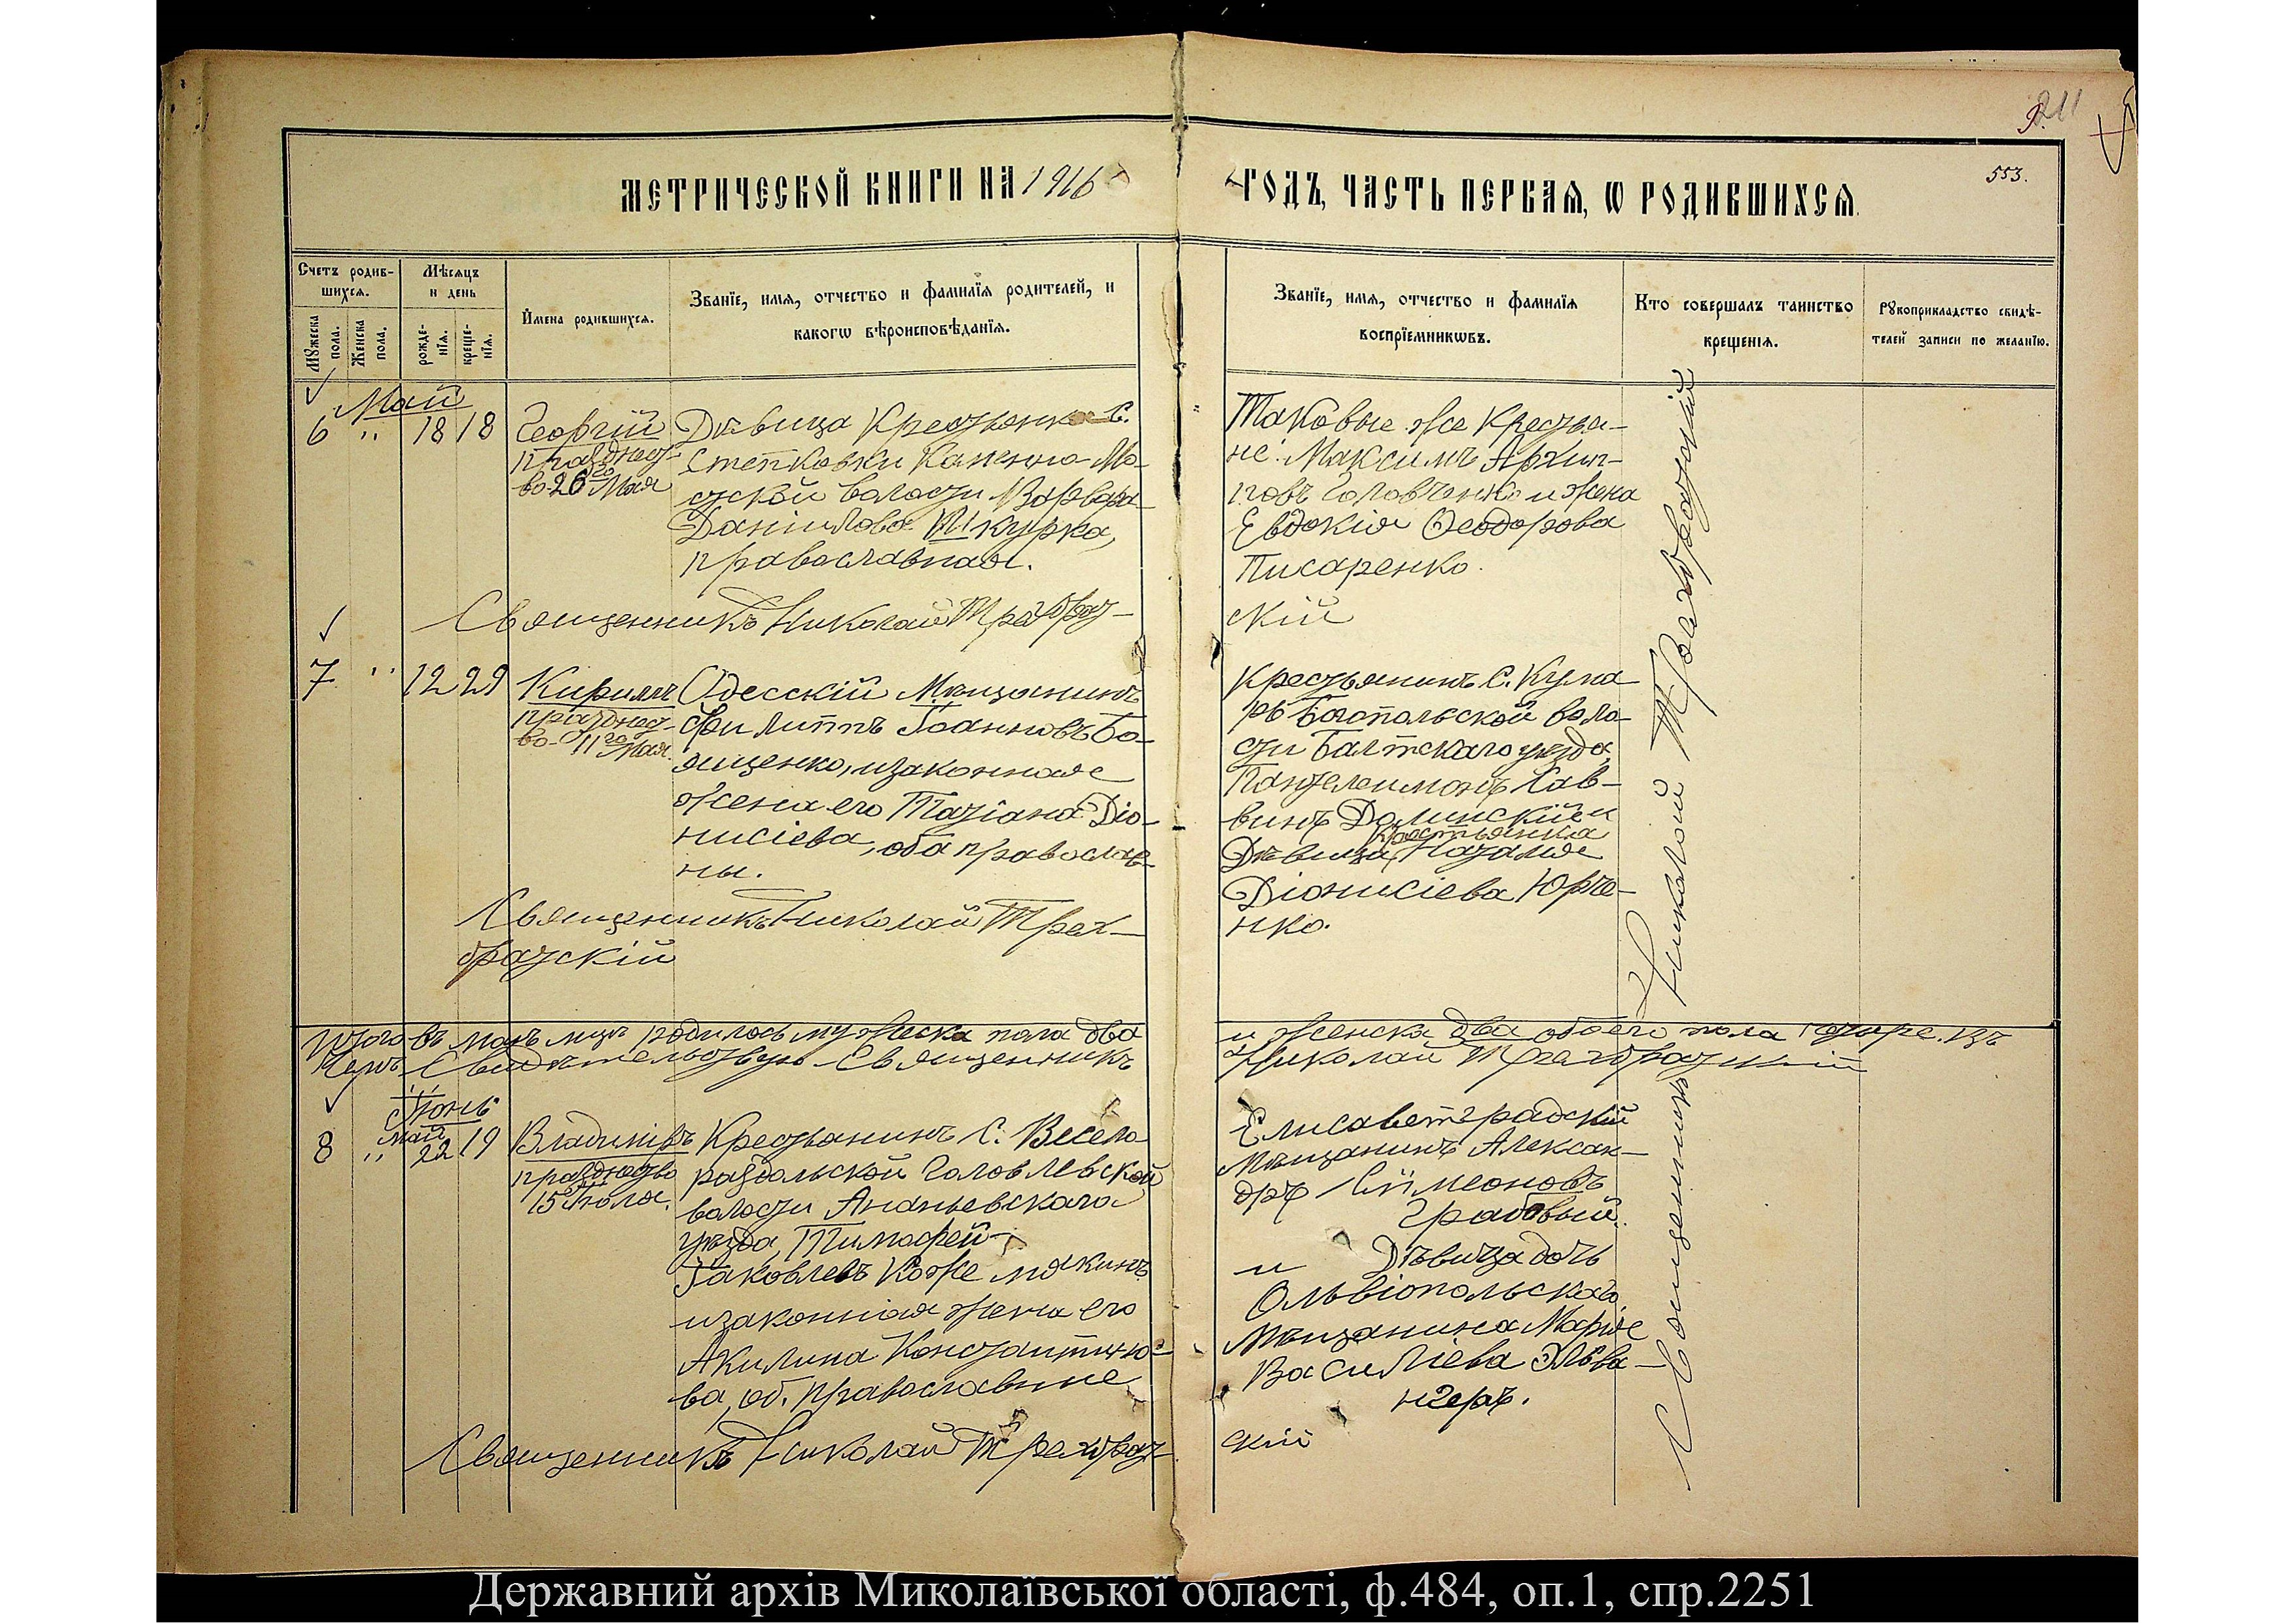 211
9.
553.
МЕТРИЧЕСКОЙ КНИГИ НА 1916
ГОДЪ, ЧАСТЬ ПЕРВАЯ, Ѡ РОДИВШИХСЯ.
Счетъ родив-
шихся.
Мѣсяцъ
и день
Мужеска
пола.
Женска
пола.
рожде-
нія.
креще-
нія.
Имена родившихся.
Званіе, имя, отчество и фамилія родителей, и
какогѡ вѣроисповѣданія.
Званіе, имя, отчество и фамилія
воспріемникѡвъ.
Кто совершалъ таинство
крещенія.
Рукоприкладство свидѣ-
телей записи по желанію.
Май
6 " 18 18
Георгій
празднест-
во 26го Мая
Дѣвица Крестьянка С.
Степковки Каменно-Мо-
стской волости Варвара
Даніилова Шкурка,
православная.
Таковые же Крестья-
не: Максимъ Архип-
повъ Головченко и жена
Евдокія Ѳеодорова
Писаренко.
Священникъ Николай Трехбрат-
скій
7 " 12 29
Кириллъ
празднест-
во 11го Мая.
Одесскій Мѣщанинъ
Филиппъ Іоанновъ Бо-
ященко, и законная
жена его Татіана Діо-
нисіева, оба православ-
ны.
Крестьянинъ С. Кума-
ръ Богопольской воло-
сти Балтскаго уѣзда,
Пантелеимонъ Сав-
винъ Долинскій и
крестьянка
Дѣвица Наталія
Діонисіева Юрче-
нко.
Священникъ Николай Трех-
братскій
Итого въ маѣ мцѣ родилось мужеска пола два
и женска два обоего пола четыре. Въ
чемъ Свидѣтельствую Священникъ
Николай Трехбратскій
Іюнь
8 " май 22 19
Владиміръ
празднество
15го Іюля.
Крестьянинъ С. Весело
раздольской Головлевской
волости Ананьевскаго
уѣзда, Тимофей
Іаковлевъ Кожемякинъ
и законная жена его
Акилина Константино-
ва, об. православные
Елисаветградскій
Мѣщанинъ Алексан-
дръ Симеоновъ
Грабовый
и Дѣвица дочь
Ольвіопольскаго
Мѣщанина Марія
Василіева
нгеръ.
Священникъ Николай Трехбрат-
скій
Священникъ Николай Трехбратскій
Державний архів Миколаївської області, ф.484, оп.1, спр.2251